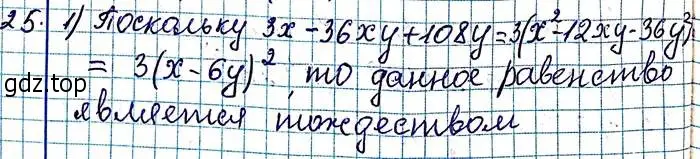 25. 1) Поскольку 3x - 36xy + 108y = 3(x² - 12xy - 36y²)
= 3(x - 6y)², то данное равенство
gdz.top
является тождеством